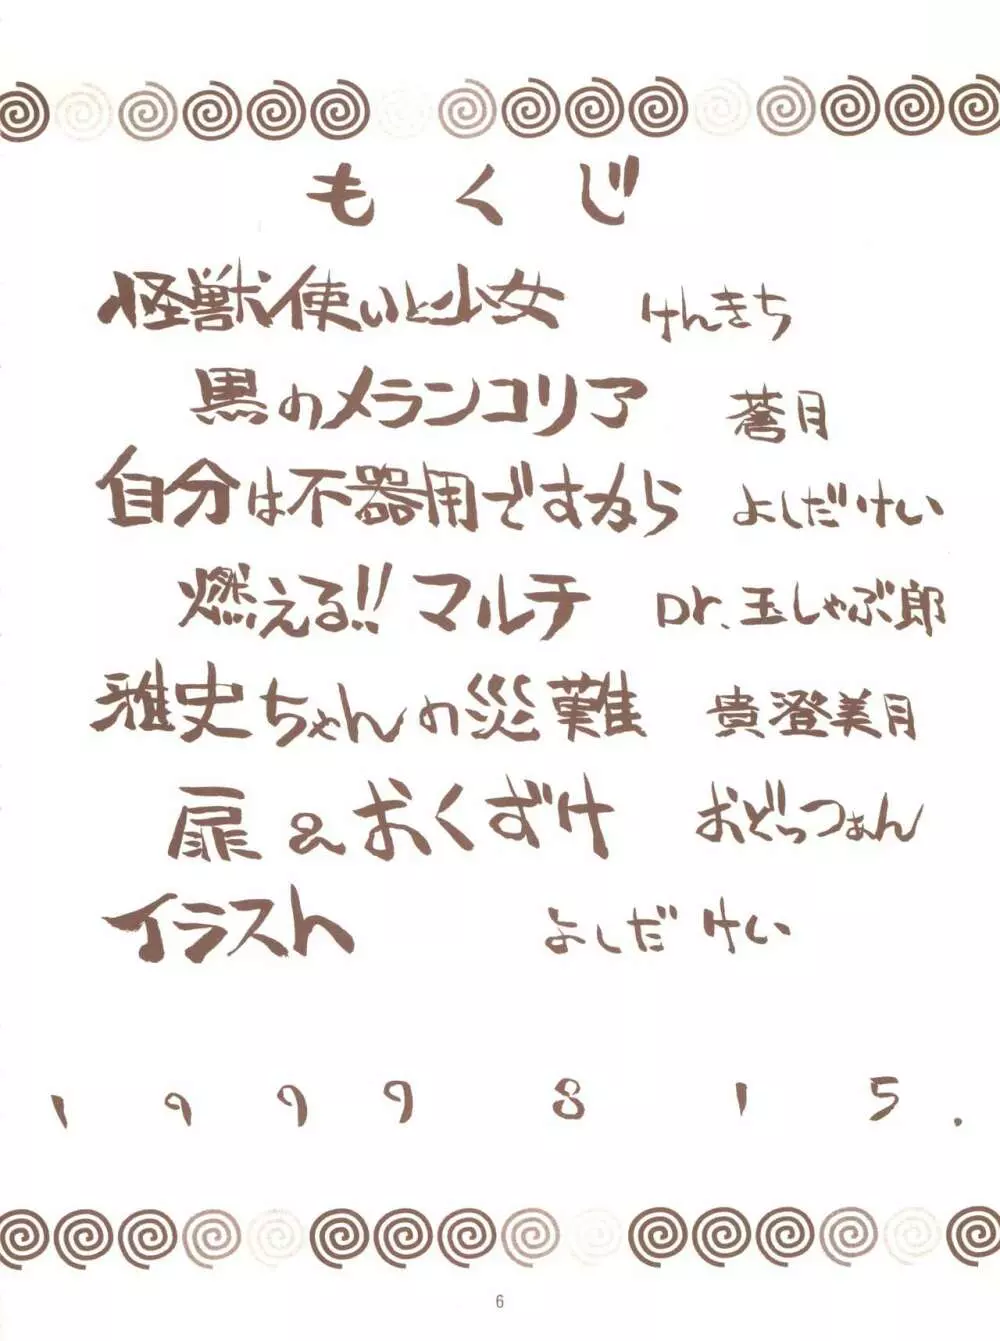 もくじ
怪獣使いと少女 けんきち
黒のメランコリア 蒼月
自分は不器用ですから よしだけい
燃える!! マルチ Dr.玉しゃぶ郎
雅史ちゃんの災難 貴澄美月
扉&おくづけ おどっつぁん
イラスト よしだけい
1999 8 15.
6